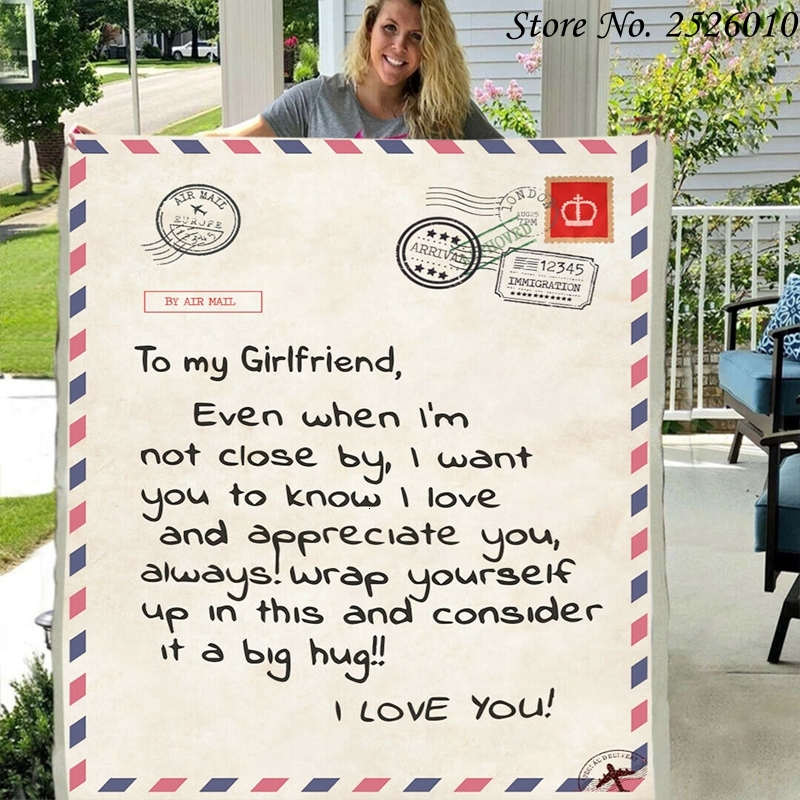 Store No. 2526010
AIR MAIL
EUROPE
LONDON
AUG 25
7PM
ARRIVAL
12345
IMMIGRATION
BY AIR MAIL
To my Girlfriend,
Even when I'm
not close by, I want
you to know I love
and appreciate you,
always! wrap yourself
up in this and consider
it a big hug!!
I LOVE YOU!
DELIVERY